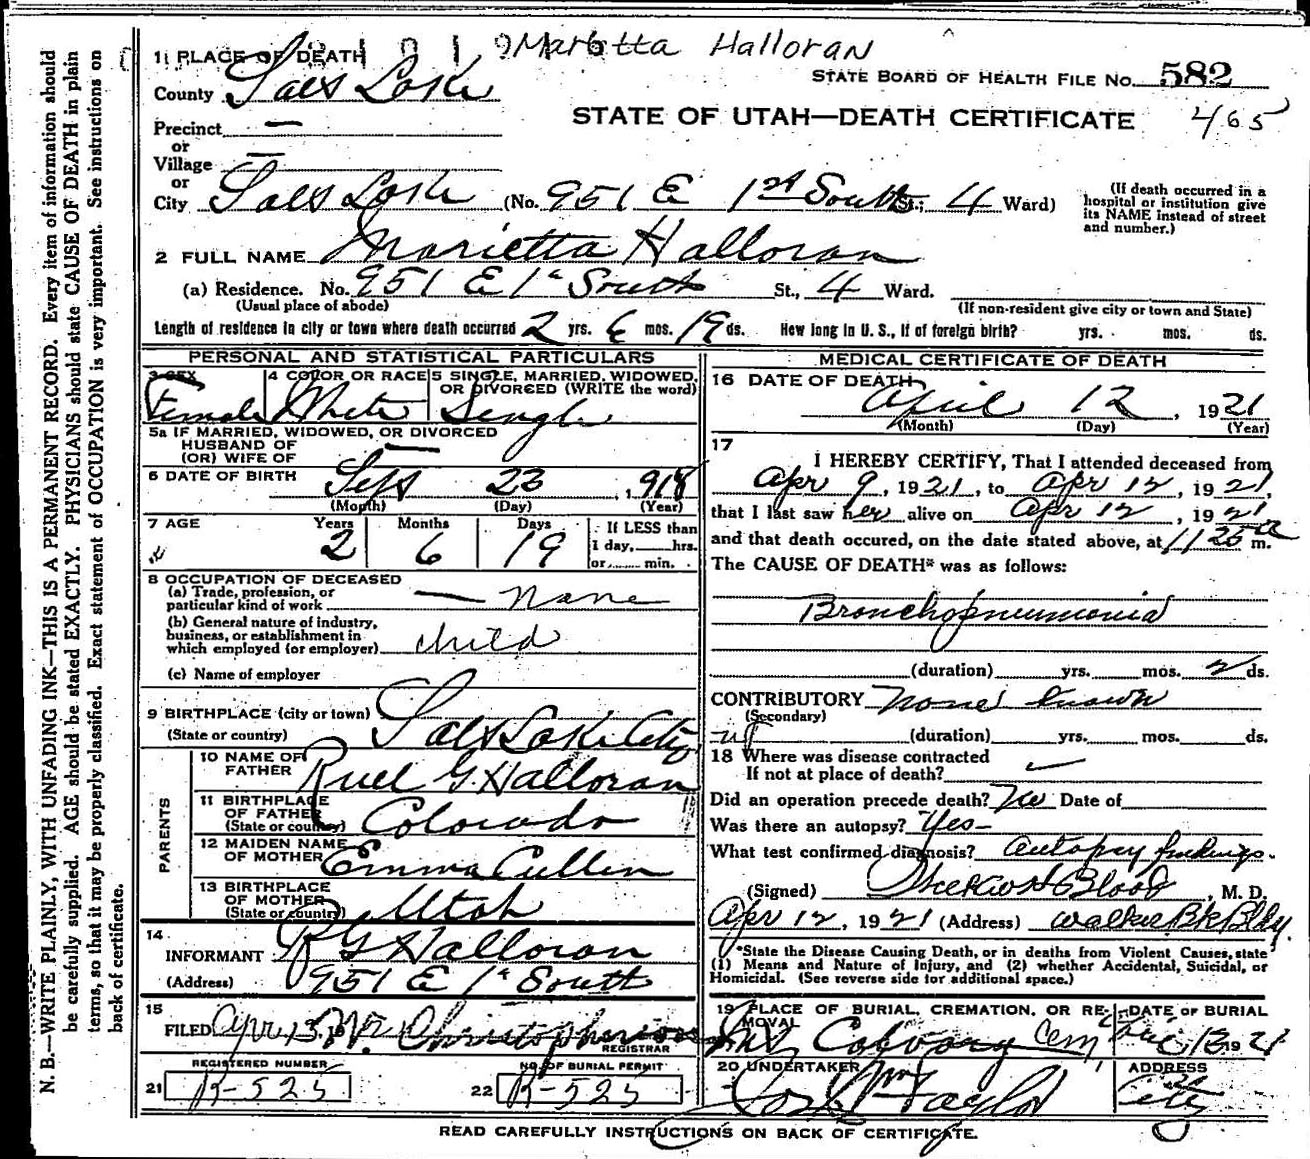 Marietta Halloran
1 PLACE OF DEATH
STATE BOARD OF HEALTH FILE No. 582
County Salt Lake
STATE OF UTAH—DEATH CERTIFICATE 465
Precinct —
or
Village —
or
City Salt Lake (No. 951 E 1st South St.; 4 Ward)
(If death occurred in a hospital or institution give its NAME instead of street and number.)
2 FULL NAME Marietta Halloran
(a) Residence. No. 951 E 1st South St., 4 Ward.
(Usual place of abode) (If non-resident give city or town and State)
Length of residence in city or town where death occurred 2 yrs. 6 mos. 19 ds. How long in U. S., if of foreign birth? yrs. mos. ds.
PERSONAL AND STATISTICAL PARTICULARS
3 SEX Female
4 COLOR OR RACE White
5 SINGLE, MARRIED, WIDOWED, OR DIVORCED (WRITE the word) Single
5a IF MARRIED, WIDOWED, OR DIVORCED
HUSBAND OF
(OR) WIFE OF —
6 DATE OF BIRTH Sept 23, 1918
(Month) (Day) (Year)
7 AGE Years Months Days If LESS than
2 6 19 1 day, hrs.
or min.
8 OCCUPATION OF DECEASED
(a) Trade, profession, or
particular kind of work — none
(b) General nature of industry,
business, or establishment in
which employed (or employer) child
(c) Name of employer
9 BIRTHPLACE (city or town)
(State or country) Salt Lake City
PARENTS
10 NAME OF FATHER Ruel G. Halloran
11 BIRTHPLACE OF FATHER (State or country) Colorado
12 MAIDEN NAME OF MOTHER Emma Cullen
13 BIRTHPLACE OF MOTHER (State or country) Utah
14
INFORMANT R G Halloran
(Address) 951 E 1st South
15
FILED Apr 13, 19 Christopherson
REGISTRAR
REGISTERED NUMBER
21 R-525
NO. OF BURIAL PERMIT
22 R-525
MEDICAL CERTIFICATE OF DEATH
16 DATE OF DEATH
April 12, 1921
(Month) (Day) (Year)
17
I HEREBY CERTIFY, That I attended deceased from
Apr 9, 1921, to Apr 12, 1921,
that I last saw her alive on Apr 12, 1921
and that death occured, on the date stated above, at 11 25 a m.
The CAUSE OF DEATH* was as follows:
Bronchopneumonia
(duration) yrs. mos. 2 ds.
CONTRIBUTORY none known
(Secondary)
(duration) yrs. mos. ds.
18 Where was disease contracted
If not at place of death?
Did an operation precede death? No Date of
Was there an autopsy? Yes—
What test confirmed diagnosis? autopsy findings.
(Signed) Blood, M. D.
Apr 12, 1921 (Address) Walker Bk Bldg.
*State the Disease Causing Death, or in deaths from Violent Causes, state
(1) Means and Nature of Injury, and (2) whether Accidental, Suicidal, or
Homicidal. (See reverse side for additional space.)
19 PLACE OF BURIAL, CREMATION, OR REMOVAL
Mt Calvary Cem
DATE OF BURIAL
13 1921
20 UNDERTAKER
Taylor
ADDRESS
City
READ CAREFULLY INSTRUCTIONS ON BACK OF CERTIFICATE.
N. B.—WRITE PLAINLY, WITH UNFADING INK—THIS IS A PERMANENT RECORD. Every item of information should
be carefully supplied. AGE should be stated EXACTLY. PHYSICIANS should state CAUSE OF DEATH in plain
terms, so that it may be properly classified. Exact statement of OCCUPATION is very important. See instructions on
back of certificate.